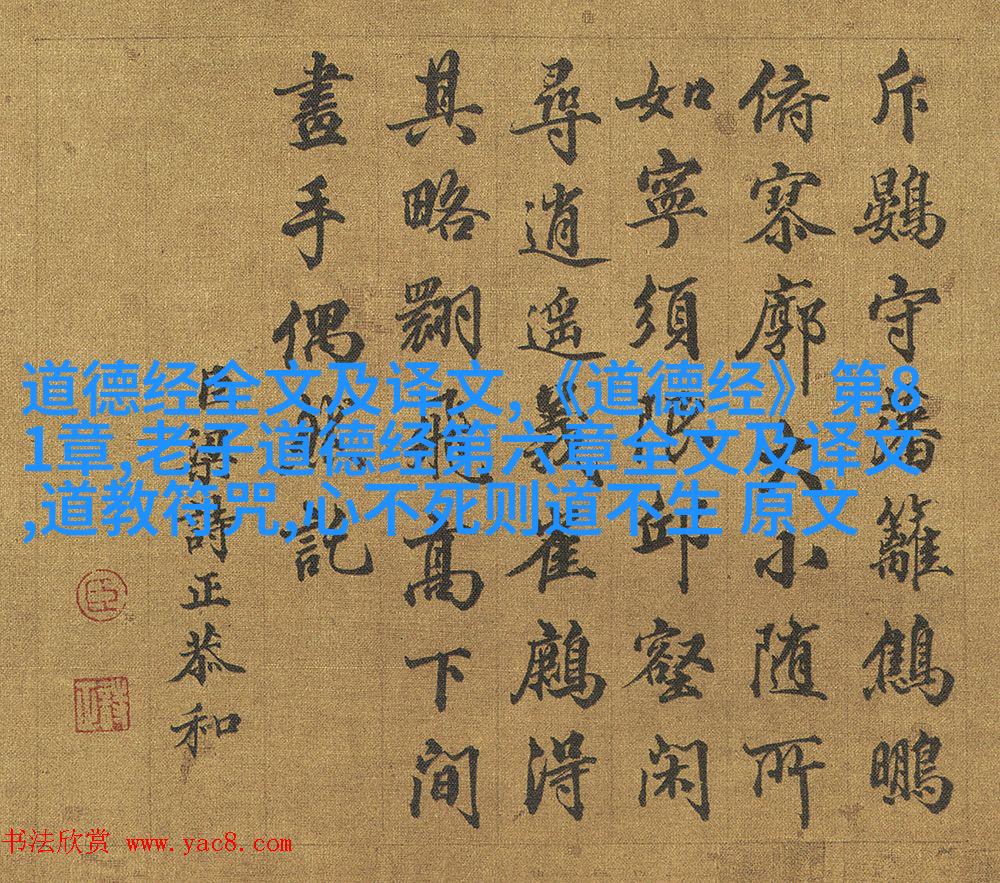 斥鷃守藩籬鷦鵬
俯寥廓大小随所
如寧須限邱壑閑
尋逍遥雀得
其略翾飛高下間
畫手偶託
臣梁詩正恭和
道德经全文及译文,《道德经》第8
1章,老子道德经第六章全文及译文
,道教符咒,心不死则道不生 原文
书法欣赏 www.yac8.com